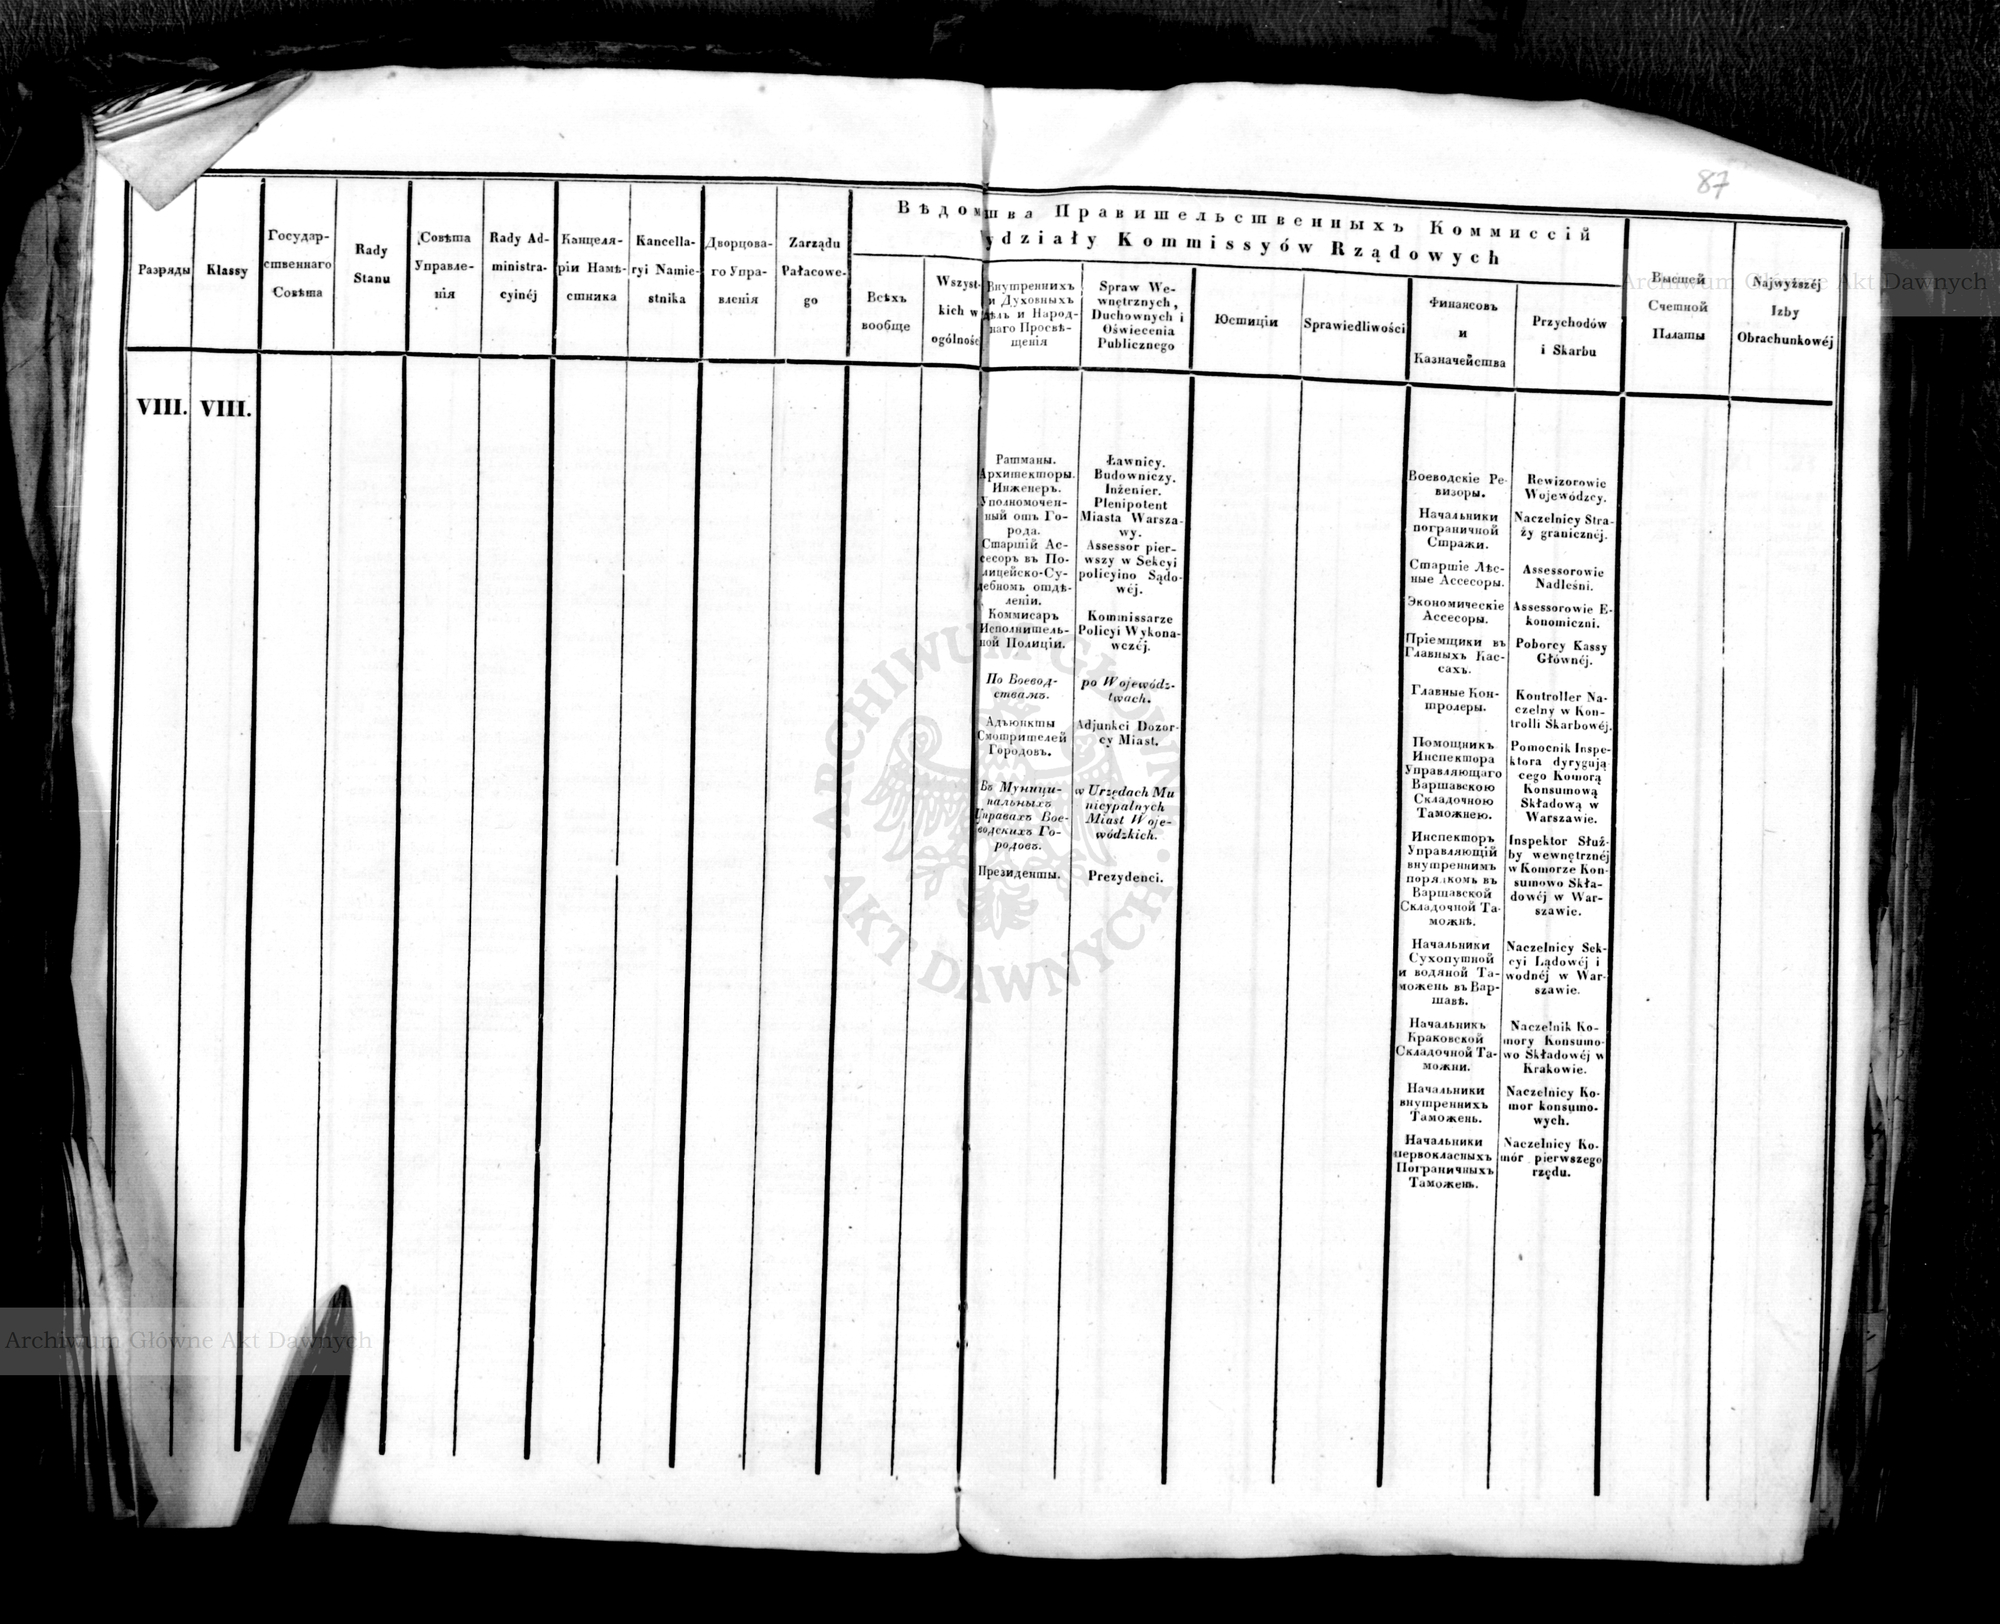 87
Вѣдомства Правительственныхъ Коммиссій
ydziały Kommissyów Rządowych
Разряды
Klassy
Государ-
ственнаго
Совѣта
Rady
Stanu
Совѣта
Управле-
нія
Rady Ad-
ministra-
cyinéj
Канцеля-
ріи Намѣ-
стника
Kancella-
ryi Namie-
stnika
Дворцова-
го Упра-
вленія
Zarządu
Pałacowe-
go
Всѣхъ
вообще
Wszyst-
kich w
ogólnośc
Внутреннихъ
и Духовныхъ
дѣлъ и Народ-
наго Просвѣ-
щенія
Spraw We-
wnętrznych,
Duchownych i
Oświecenia
Publicznego
Юстиціи
Sprawiedliwości
Финансовъ
и
Казначейства
Przychodów
i Skarbu
Высшей
Счетной
Палаты
Najwyższéj
Izby
Obrachunkowéj
VIII.
VIII.
Ратманы.
Архитекторы.
Инженеръ.
Уполномочен-
ный отъ Го-
рода.
Старшій Ас-
сесоръ въ По-
лицейско-Су-
дебномъ отдѣ-
леніи.
Коммисаръ
Исполнитель-
ной Полиціи.
По Воевод-
ствамъ.
Адъюнкты
Смотрителей
Городовъ.
Въ Муници-
пальныхъ
Управахъ Вое-
водскихъ Го-
родовъ.
Президенты.
Ławnicy.
Budowniczy.
Inżenier.
Plenipotent
Miasta Warsza-
wy.
Assessor pier-
wszy w Sekcyi
policyino Sądo-
wéj.
Kommissarze
Policyi Wykona-
wczéj.
po Wojewódz-
twach.
Adjunkci Dozor-
cy Miast.
w Urzędach Mu
nicypalnych
Miast Woje-
wódzkich.
Prezydenci.
Воеводскіе Ре-
визоры.
Начальники
пограничной
Стражи.
Старшіе Лѣс-
ные Ассесоры.
Экономическіе
Ассесоры.
Пріемщики въ
Главныхъ Кас-
сахъ.
Главные Кон-
тролеры.
Помощникъ
Инспектора
Управляющаго
Варшавскою
Складочною
Таможнею.
Инспекторъ
Управляющій
внутреннимъ
порядкомъ въ
Варшавской
Складочной Та-
можнѣ.
Начальники
Сухопутной
и водяной Та-
можень въ Вар-
шавѣ.
Начальникъ
Краковской
Складочной Та-
можни.
Начальники
внутреннихъ
Таможень.
Начальники
первокласныхъ
Пограничныхъ
Таможень.
Rewizorowie
Wojewódzcy.
Naczelnicy Stra-
ży granicznéj.
Assessorowie
Nadleśni.
Assessorowie E-
konomiczni.
Poborcy Kassy
Głównéj.
Kontroller Na-
czelny w Kon-
trolli Skarbowéj.
Pomocnik Inspe-
ktora dyrygują
cego Komorą
Konsumową
Składową w
Warszawie.
Inspektor Służ-
by wewnętrznéj
w Komorze Kon-
sumowo Skła-
dowéj w War-
szawie.
Naczelnicy Sek-
cyi Lądowéj i
wodnéj w War-
szawie.
Naczelnik Ko-
mory Konsumo-
wo Składowéj w
Krakowie.
Naczelnicy Ko-
mor konsumo-
wych.
Naczelnicy Ko-
mór pierwszego
rzędu.
Archiwum Główne Akt Dawnych
Archiwum Główne Akt Dawnych
ARCHIWUM GŁÓWNE
AKT DAWNYCH